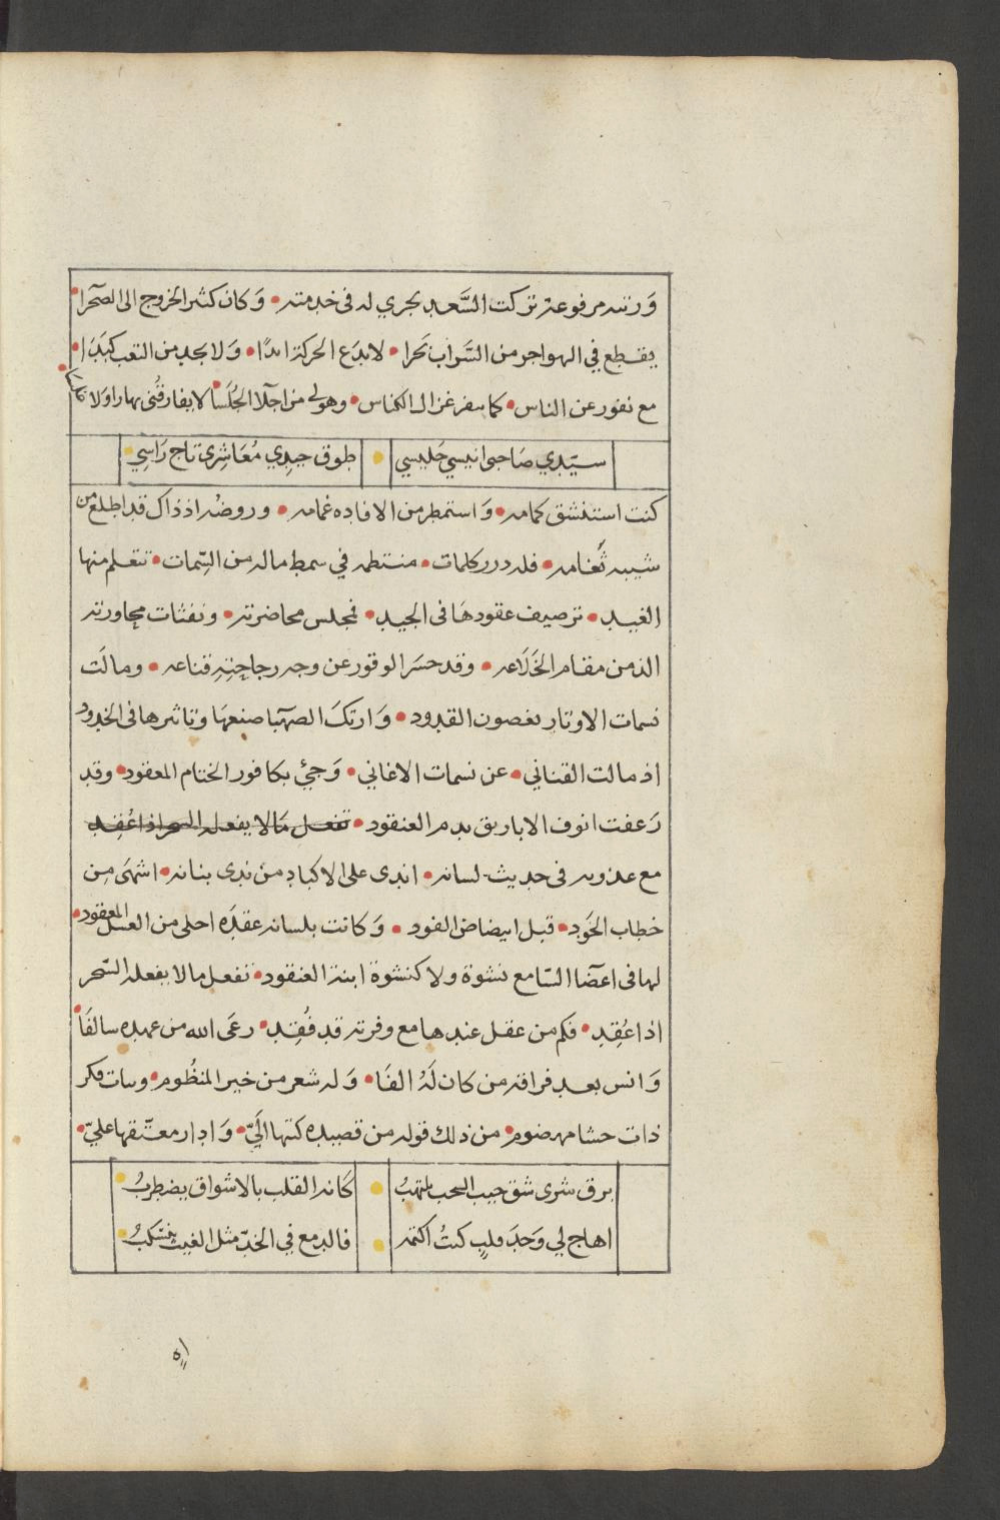 ورتبه مرفوعة تركت السَّعد يجري له فى خدمته • وَكان كثير الخروج الى الصحرا •
يقطع في الهواجر من السَّراب بَحرا • لا يدَع الحركة ابدًا • وَلا يجد من التعب كبَدَا •
مع نفور عن الناس • كما سفر غزال الكناس • وهو لي من اجلّا الجُلَسا • لا يفارقُنى نهارا ولا مَسَا •
سيّدي صَاحبى انيسي جَليسي • طوق جيدي مُعَاشِرى تاج رَاسِي •
كنت استنشق كمامه • وَاستمطر من الافاده غمامه • وروضه اذ ذاك قد اطلع من
شيبه ثَغامه • فله درر كلمات • منتظمه في سمط ماله من السِّمات • تتعلم منها
الغيد • ترصيف عقودهَا فى الجيد • فمجلس محاضرته • ونفثات محاورته
الذ من مقام الخَلَاعه • وقد حسَر الوقور عن وجه رجاحتِهِ قناعه • ومالَت
نسمات الاوتار بغصون القدود • وَارتكَ الصهبَا صنعهَا وتاثيرها فى الخدود
اذ مالت القنانى • عن نسمات الاغاني • وَجئ بكافور الختام المعقود • وقد
رَعفت انوف الاباريق بدم العنقود • تفعل مَالا يفعله السحر اذا عُقِد
مع عذوبه فى حديث لسانه • اندى على الاكبادِ من ندى بنانه • اشهَى مِن
خطاب الخَود • قبل ابيضاض الفود • وَكانت بلسانه عقدَه احلى من العسل المعقود •
لها فى اعضَا السَّامع نشوة ولا كنشوة ابنة العنقود • تفعل مالا يفعله السّحر
اذا عُقِد • فكم من عقل عندها مع وفرته قد فُقِد • رعَى الله من عهده سالفَا •
وَانس بعد فراقه من كان لَهُ الفَا • وَله شعر من خير المنظُوم • وبنات فكر
ذات حشا مهضوم • من ذلك قوله من قصيده كتبها الَيّ • وَادار معتّقها عليّ •
برق شرى شق جيب السحب يلتهبُ • كَانه القلب بالاشواق يضطربُ •
اهاج لي وَجدَ قلبٍ كنتُ اكتمه • فالدمع في الخدّ مثل الغيث ينسكبُ •